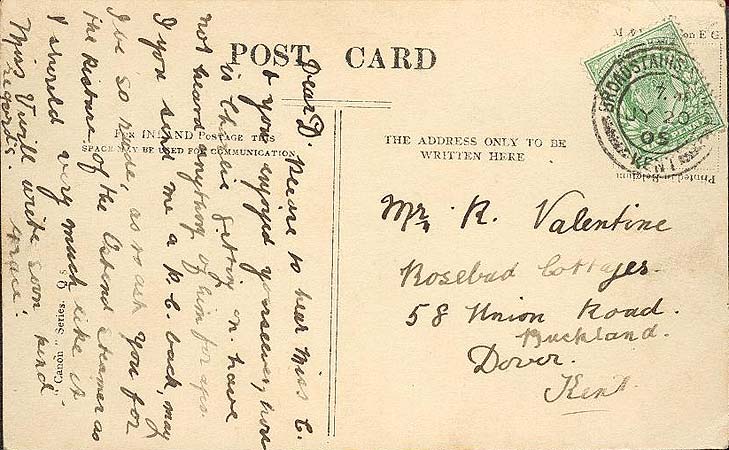 POST CARD
FOR INLAND POSTAGE THIS
SPACE MAY BE USED FOR COMMUNICATION
THE ADDRESS ONLY TO BE
WRITTEN HERE
Printed in Belgium
BROADSTAIRS
JY 20
05
Mr. R. Valentine
Rosebad Cottages.
58 Union Road.
Buckland.
Dover.
Kent.
Dear D. Desire to hear Miss C.
& you enjoyed yourselves, how
is Clive getting on. have
not heard anything of him for ages.
If you send me a P.C. back, may
I be so rude, as to ask you for
the picture of the Ostend steamer as
I should very much like it
Miss V will write soon kind
regards. Grace.
"Canon" Series.